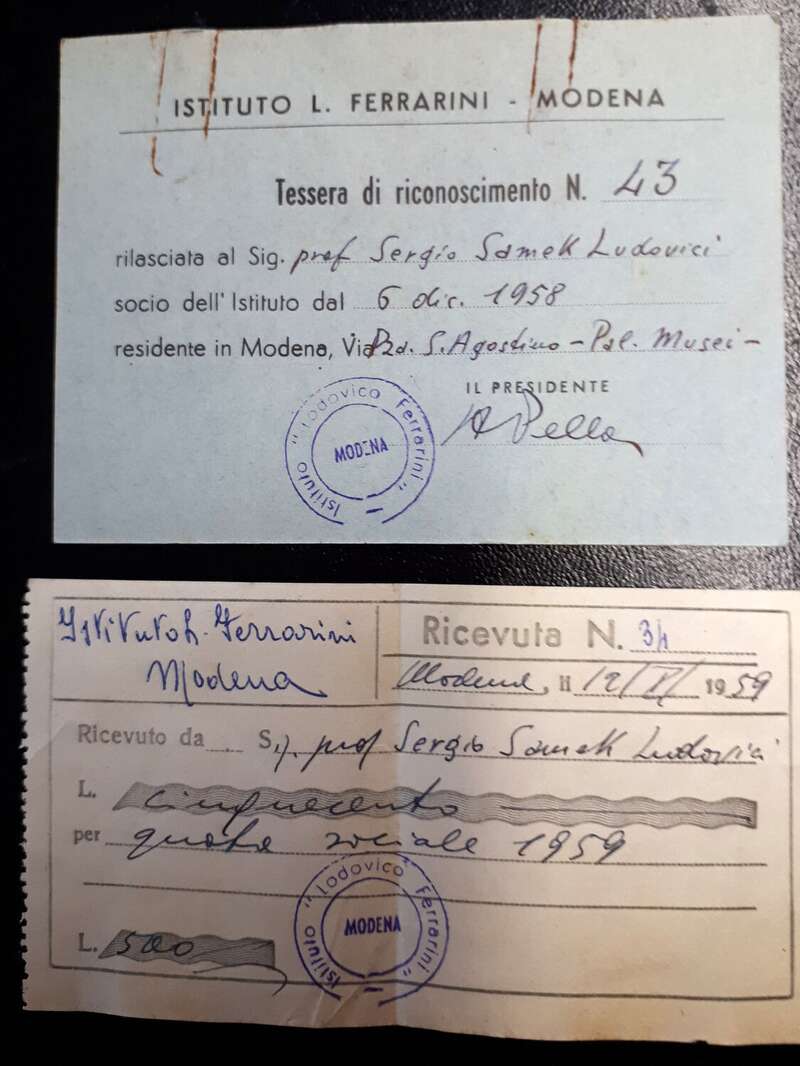 ISTITUTO L. FERRARINI - MODENA
Tessera di riconoscimento N. 43
rilasciata al Sig. prof Sergio Samek Ludovici
socio dell'Istituto dal 6 dic. 1958
residente in Modena, Via P.za. S. Agostino - Pal. Musei -
IL PRESIDENTE
Istituto "Lodovico Ferrarini"
MODENA
Istituto L. Ferrarini
Modena
Ricevuta N. 34
Modena, li 12/ / 1959
Ricevuto da S. prof Sergio Samek Ludovici
L. cinquecento
per quota sociale 1959
L. 500
Istituto "Lodovico Ferrarini"
MODENA